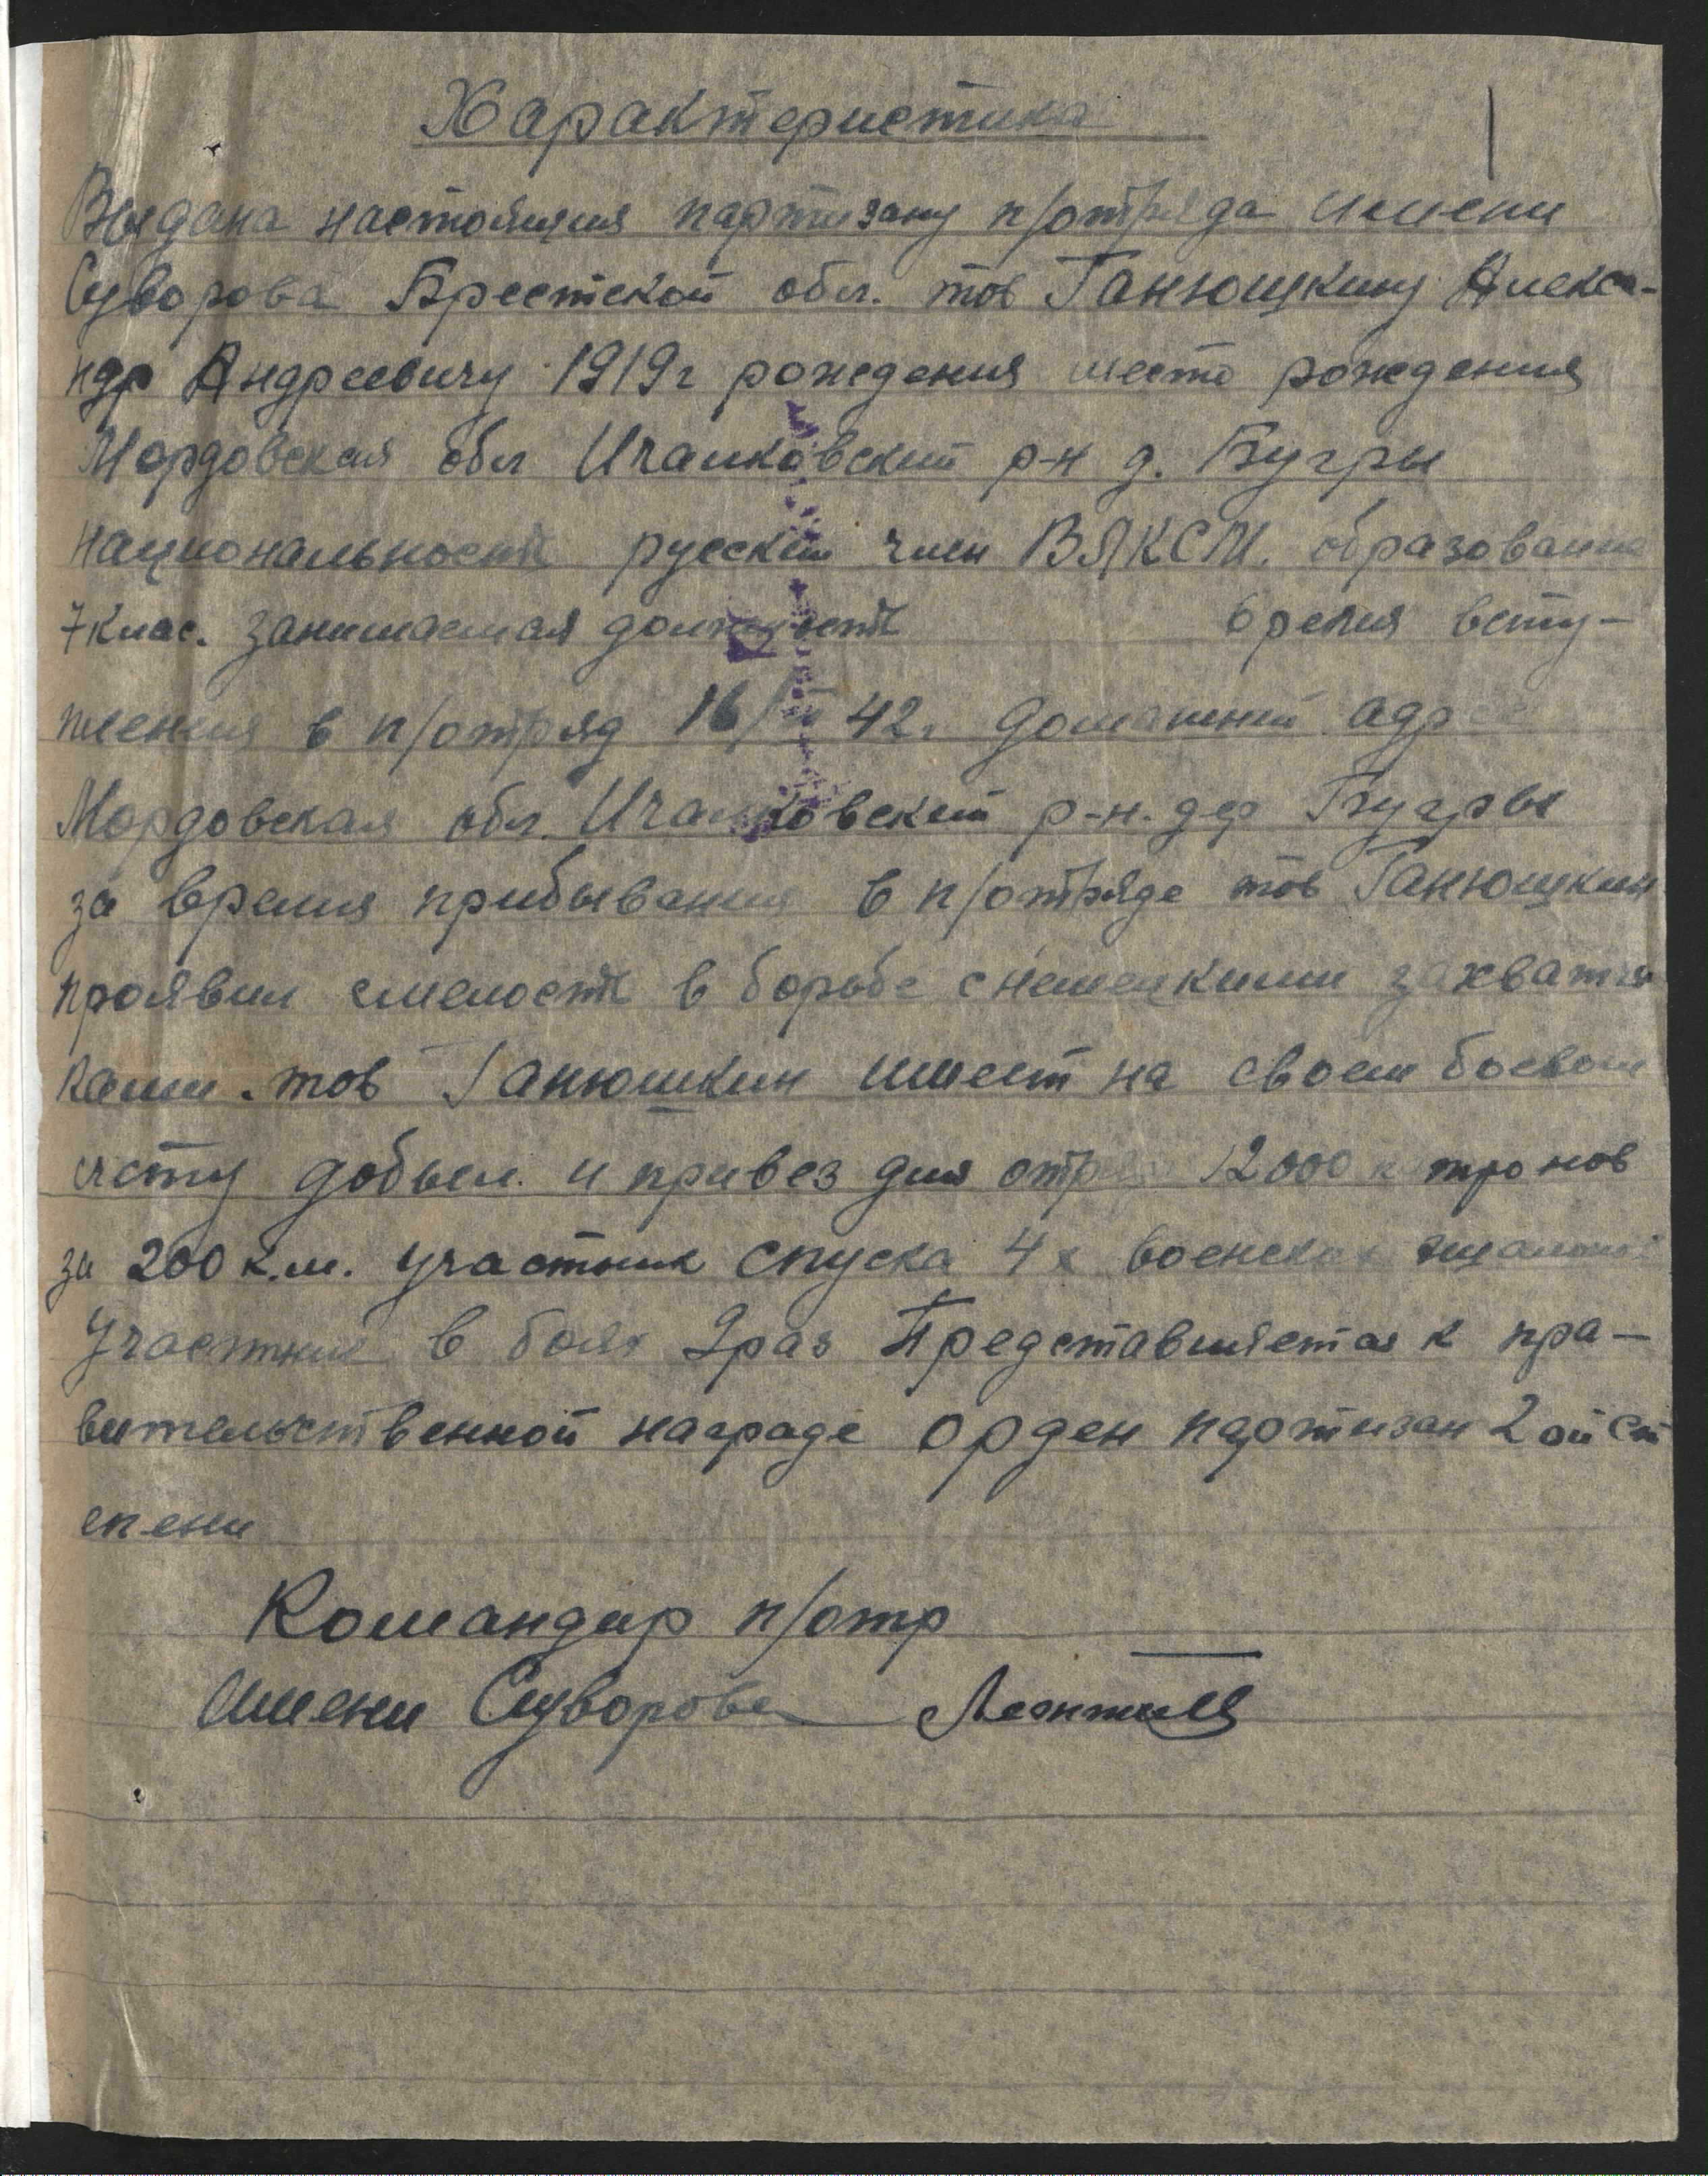 Характеристика
Выдана настоящия партизану п/отряда имени
Суворова Брестской обл. тов Ганюшкину Алекса-
ндр Андреевичу 1919г рождения место рождения
Мордовская обл Ичалковский р-н д. Бугры
национальность русский член ВЛКСМ. образование
7 клас. занимаемая должность время всту-
пления в п/отряд 16/ 42г. домашний адрес
Мордовская обл. Ичалковский р-н. дер Бугры
за время прибывания в п/отряде тов Ганюшкин
проявил смелость в борьбе с немецкими захватчи
ками. тов Ганюшкин имеет на своем боевом
счету добыл и привез для отряда 12000 патронов
за 200 к.м. участник спуска 4х военских эшалонов
Участник в боях 9 раз Представляется к пра-
вительственной награде орден партизан 2ой ст
епени
Командир п/отр
имени Суворова